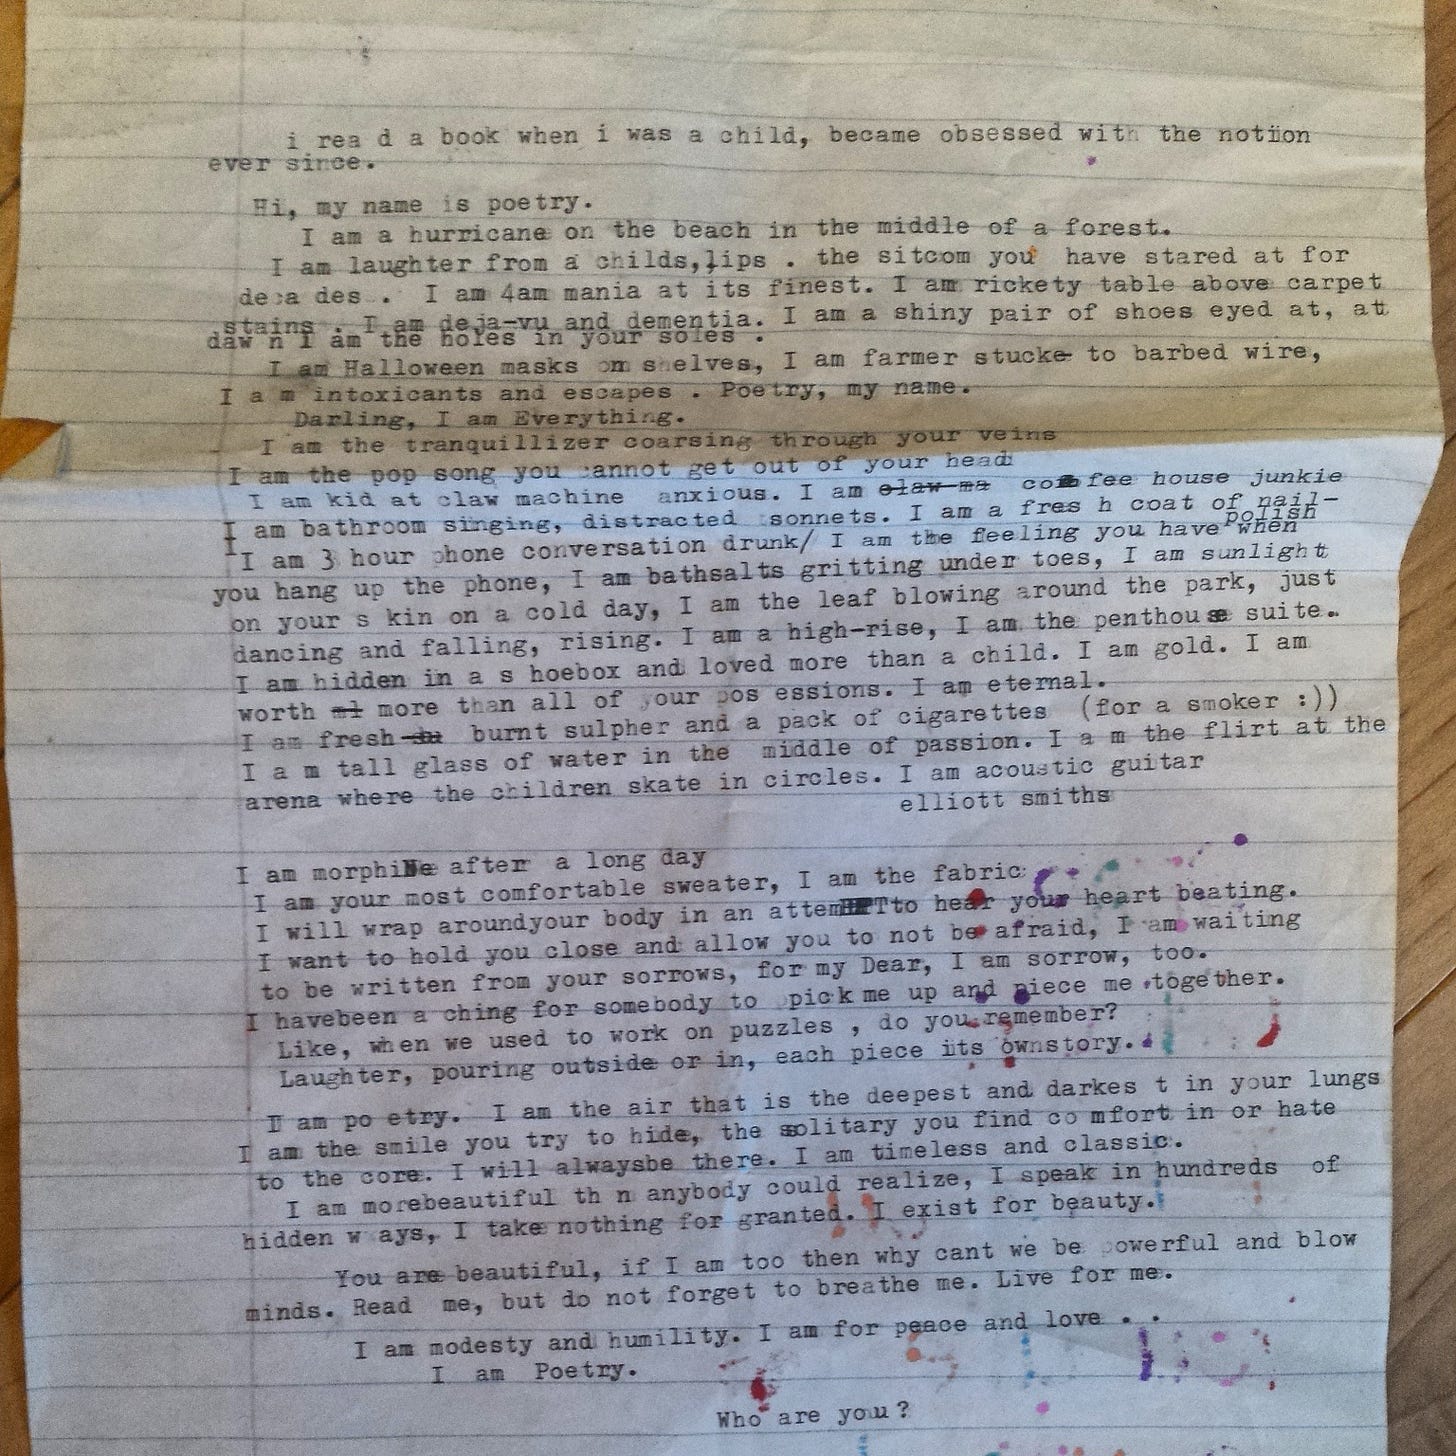 i rea d a book when i was a child, became obsessed with the notiion
ever since.
Hi, my name is poetry.
I am a hurricane on the beach in the middle of a forest.
I am laughter from a childs,lips . the sitcom you have stared at for
deca des . I am 4am mania at its finest. I am rickety table above carpet
stains . I am deja-vu and dementia. I am a shiny pair of shoes eyed at, att
daw n I am the holes in your soles .
I am Halloween masks on shelves, I am farmer stucke to barbed wire,
I a m intoxicants and escapes . Poetry, my name.
Darling, I am Everything.
I am the tranquillizer coarsing through your veins
I am the pop song you cannot get out of your head
I am kid at claw machine anxious. I am claw ma coffee house junkie
I am bathroom singing, distracted sonnets. I am a fres h coat of nail-
polish
I am 3 hour phone conversation drunk/ I am the feeling you have when
you hang up the phone, I am bathsalts gritting under toes, I am sunlight
on your s kin on a cold day, I am the leaf blowing around the park, just
dancing and falling, rising. I am a high-rise, I am the penthouse suite..
I am hidden in a s hoebox and loved more than a child. I am gold. I am
worth ml more than all of your pos essions. I am eternal.
I am fresh su burnt sulpher and a pack of cigarettes (for a smoker :))
I a m tall glass of water in the middle of passion. I a m the flirt at the
arena where the children skate in circles. I am acoustic guitar
elliott smiths
I am morphiNe after a long day
I am your most comfortable sweater, I am the fabric
I will wrap aroundyour body in an attemPTto hear your heart beating.
I want to hold you close and allow you to not be afraid, I am waiting
to be written from your sorrows, for my Dear, I am sorrow, too.
I havebeen a ching for somebody to pick me up and piece me together.
Like, when we used to work on puzzles , do you remember?
Laughter, pouring outside or in, each piece its ownstory.
I am po etry. I am the air that is the deepest and darkes t in your lungs
I am the smile you try to hide, the solitary you find co mfort in or hate
to the core. I will alwaysbe there. I am timeless and classic.
I am morebeautiful th n anybody could realize, I speak in hundreds of
hidden w ays, I take nothing for granted. I exist for beauty.
You are beautiful, if I am too then why cant we be powerful and blow
minds. Read me, but do not forget to breathe me. Live for me.
I am modesty and humility. I am for peace and love . .
I am Poetry.
Who are you?